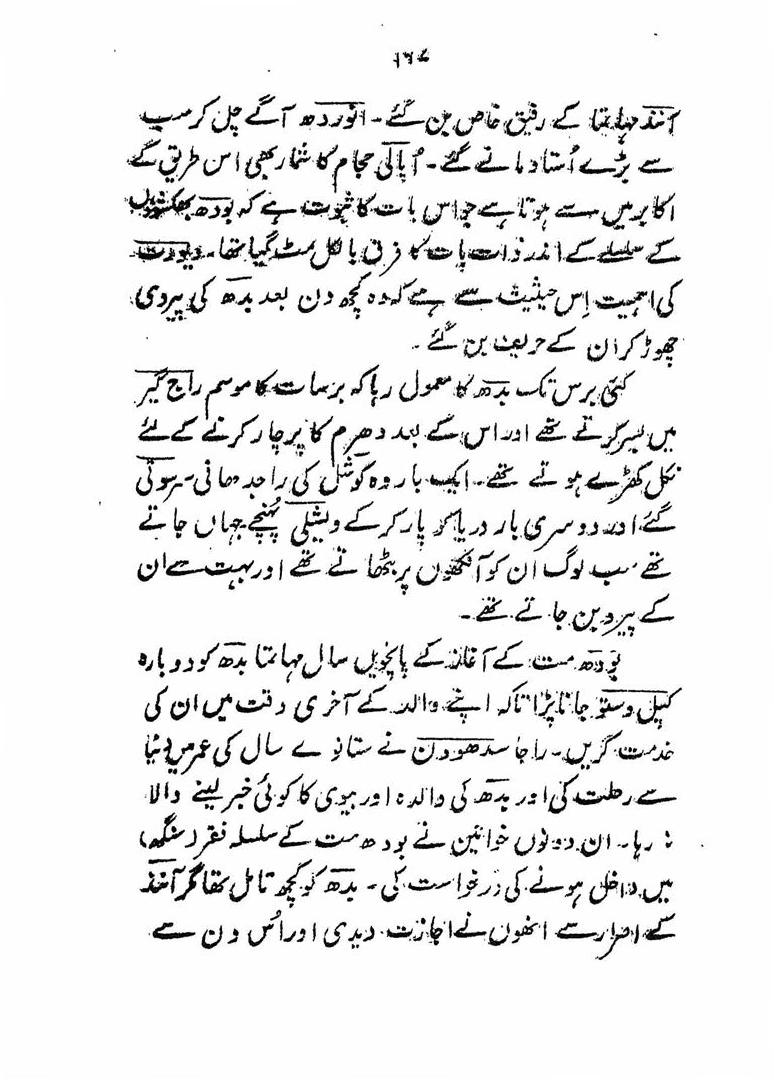 ۱۶۸
آنند مہاتما کے رفیق خاص بن گئے۔ انوردھ آگے چل کر سب
سے بڑے اُستاد مانے گئے۔ اُپالی حجام کا شمار بھی اس طریق کے
اکابر میں سے ہوتا ہے جو اس بات کا ثبوت ہے کہ بودھ بھکشوؤں
کے سلسلے کے اندر ذات پات کا فرق بالکل مٹ گیا تھا۔ دیودت
کی اہمیت اِس حیثیت سے ہے کہ وہ کچھ دن بعد بدھ کی پیروی
چھوڑ کر ان کے حریف بن گئے۔
کئی برس تک بدھ کا معمول رہا کہ برسات کا موسم راج گیر
میں بسر کرتے تھے اور اس کے بعد دھرم کا پرچار کرنے کے لئے
نکل کھڑے ہوتے تھے۔ ایک بار وہ کوشل کی راجدھانی سرسوتی
گئے اور دوسری بار دریا کو پار کر کے ویشلی پہنچے جہاں جاتے
تھے سب لوگ ان کو آنکھوں پر بٹھاتے تھے اور بہت سے ان
کے پیرو بن جاتے تھے۔
بودھ مت کے آغاز کے پانچویں سال مہاتما بدھ کو دوبارہ
کپل وستو جانا پڑا تاکہ اپنے والد کے آخری وقت میں ان کی
خدمت کریں۔ راجا سدھودن نے ستانوے سال کی عمر میں دنیا
سے رحلت کی اور بدھ کی والدہ اور بیوی کا کوئی خبر لینے والا
نہ رہا۔ ان دونوں خواتین نے بودھ مت کے سلسلہ فقر (سنگھ)
میں داخل ہونے کی درخواست کی۔ بدھ کو کچھ تامل تھا مگر آنند
کے اصرار سے انھوں نے اجازت دیدی اور اُس دن سے